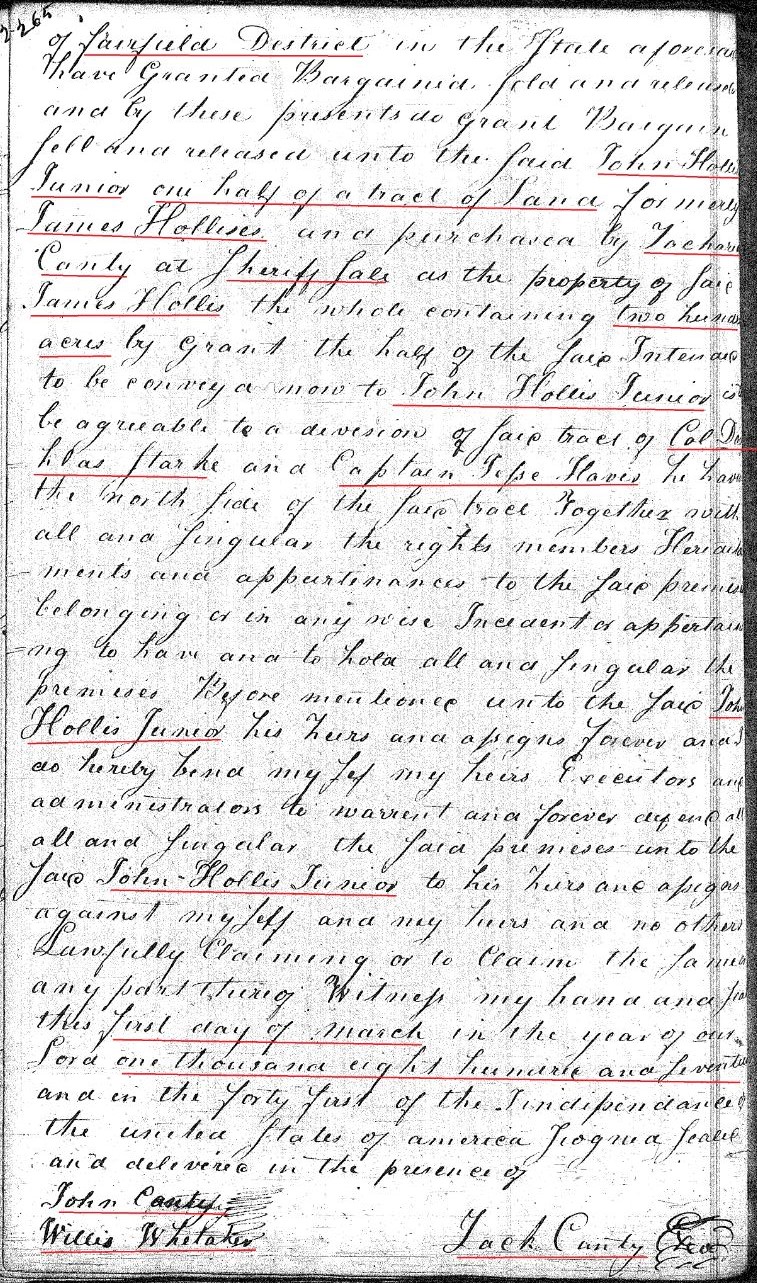 265
of Fairfield District in the State aforesaid
have Granted Bargained Sold and released
and by these presents do grant Bargain
Sell and released unto the Said John Hollis
Junior one half of a tract of Land formerly
James Hollises and purchased by Zachari
Canty at Sheriff Sale as the property of Said
James Hollis the whole containing two hund
acres by Grant the half of the Said Intended
to be conveyd now to John Hollis Junior is
be agreeable to a devision of Said tract of Col
Starke and Captain Jesse Havis he have
the north Side of the Said tract Together with
all and Singular the rights members Heridita
ments and appurtinances to the Said premis
belonging or in any wise Incedent or appertaini
ng to have and to hold all and Singular the
premises Before mentioned unto the Said John
Hollis Junior his heirs and assigns forever and I
do hereby bend my Self my heirs Executors and
administrators to warrent and forever defend all
all and Singular the Said premeses unto the
Said John Hollis Junior to his heirs and assigns
against my Self and my heirs and no others
Lawfully Claiming or to Claim the Same
any part thereof Witness my hand and Sea
this first day of march in the year of our
Lord one thousand eight hundred and Seventee
and in the forty first of the Independance of
the united States of america Siogned Sealed
and delivered in the presence of
John Canty
Willis Whitaker
Zack Canty